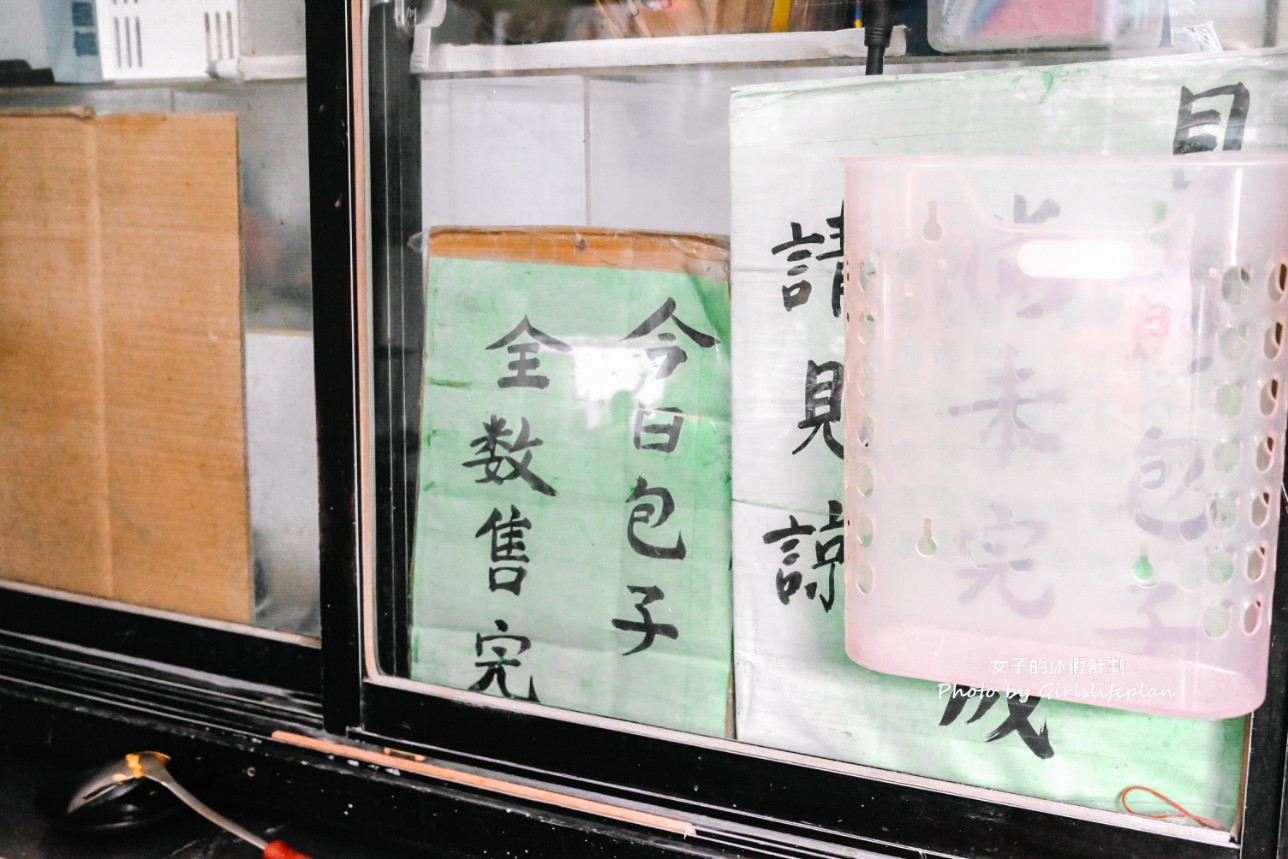 今日包子
全数售完
目前包子
尚未完成
請見諒
女子的休假計劃
Photo by Girlslifeplan